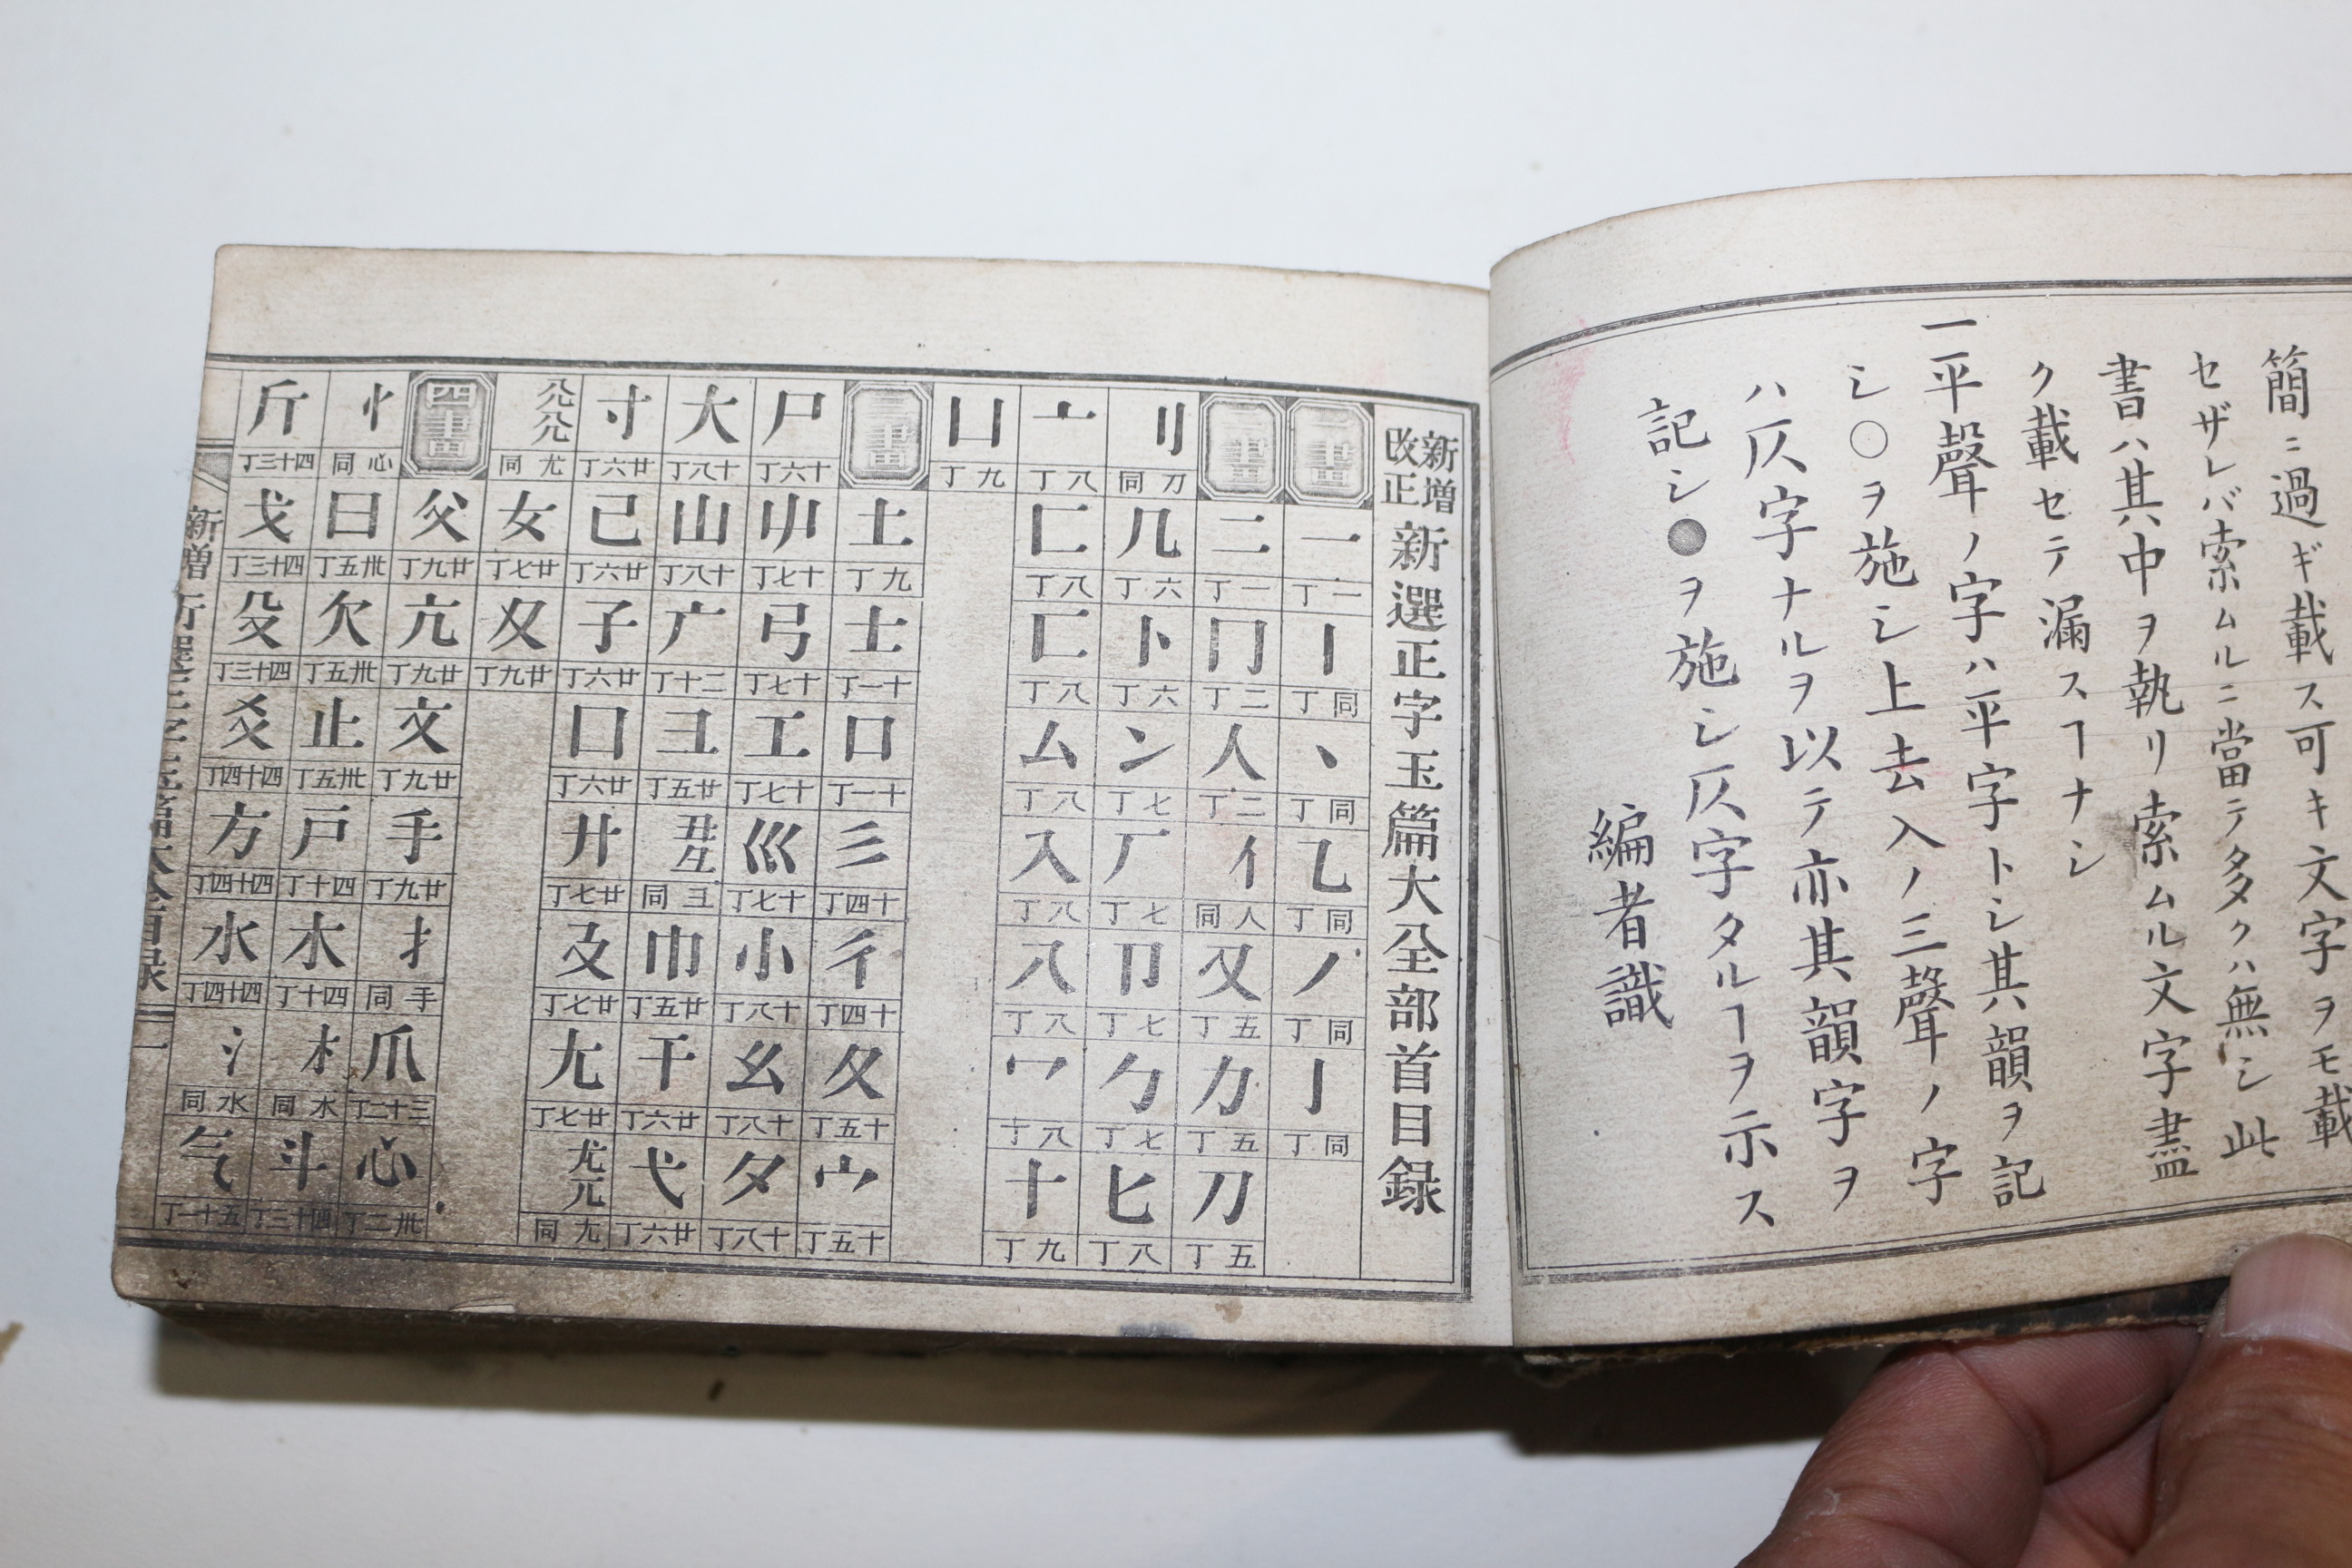 簡ニ過ギ載ス可キ文字ヲモ載
セザレバ索ムルニ當テ多クハ無シ此
書ハ其中ヲ執リ索ムル文字盡
ク載セテ漏スヿナシ
一平聲ノ字ハ平字トシ其韻ヲ記
シ○ヲ施シ上去入ノ三聲ノ字
ハ仄字ナルヲ以テ亦其韻字ヲ
記シ●ヲ施シ仄字タルヿヲ示ス
編者識
新増改正新選正字玉篇大全部首目録
一畫 一 一丁 丨 同丁 丶 同丁 乙 同丁 ノ 同丁 亅 同丁
二畫 二 一丁 冂 二丁 人 二丁 亻 人同 又 五丁 力 五丁 刀 五丁
刂 刀同 几 六丁 卜 六丁 冫 七丁 厂 七丁 卩 七丁 勹 七丁 匕 八丁
亠 八丁 匚 八丁 匸 八丁 厶 八丁 入 八丁 八 八丁 冖 八丁 十 九丁
凵 九丁
三畫 土 九丁 士 十一丁 口 十一丁 彡 十四丁 彳 十四丁 夂 十五丁 宀 十五丁
尸 十六丁 屮 十七丁 弓 十七丁 工 十七丁 巛 十七丁 小 十八丁 幺 十八丁 夕 十八丁
大 十八丁 山 十八丁 广 二十丁 彐 廿五丁 彑 彐同 巾 廿五丁 干 廿六丁 弋 廿六丁
寸 廿六丁 己 廿六丁 子 廿六丁 囗 廿六丁 廾 廿七丁 廴 廿七丁 尢 廿七丁 尤兀 尢同
尣 尤同 女 廿七丁 夊 廿九丁
四畫 父 廿九丁 亢 廿九丁 文 廿九丁 手 廿九丁 扌 手同 爪 三十二丁 心 卅二丁
忄 心同 曰 卅五丁 欠 卅五丁 止 卅五丁 戸 四十丁 木 四十丁 朩 木同 斗 四十三丁
斤 四十三丁 戈 四十三丁 殳 四十三丁 爻 四十四丁 方 四十四丁 水 四十四丁 氵 水同 气 五十一丁
新増 新選正字玉篇大全目録 一